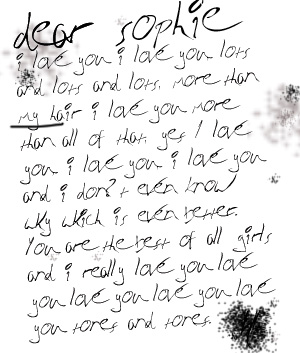 dear sophie
i love you i love you lots
and lots and lots. more than
my hair i love you more
than all of that. yes i love
you i love you i love you
and i don't even know
why which is even better.
You are the best of all girls
and i really love you love
you love you love you love
you tores and tores.